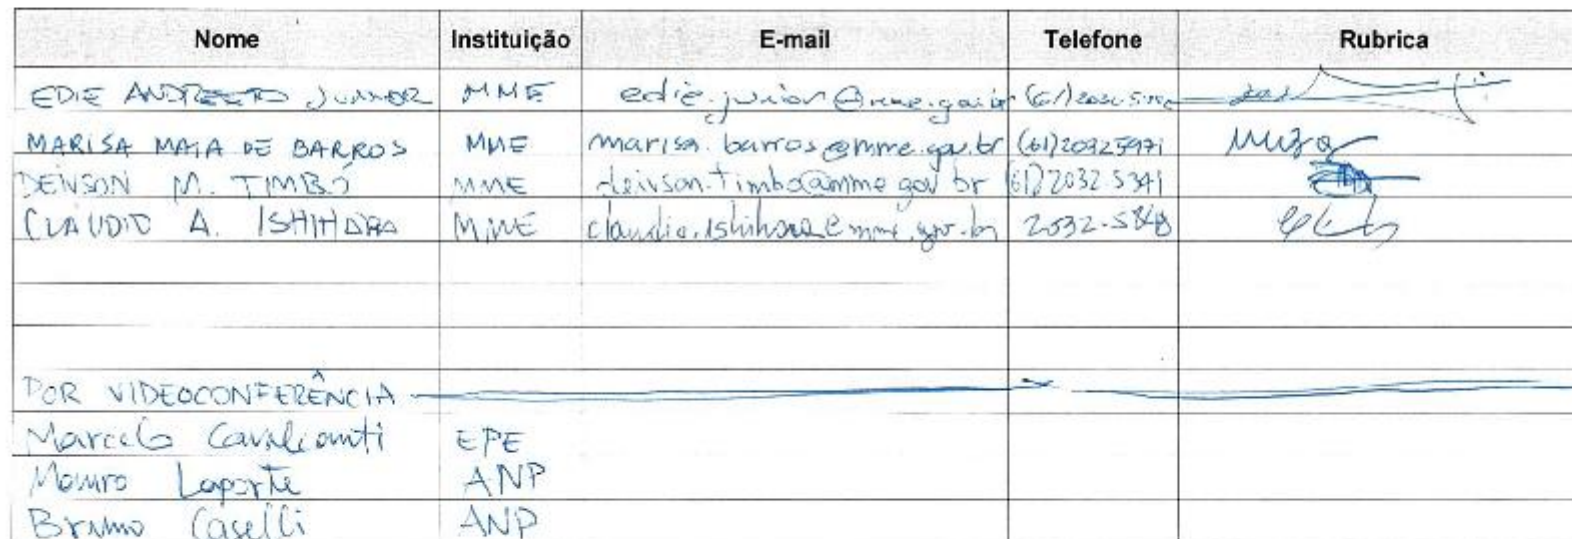 Nome Instituição E-mail Telefone Rubrica
EDIE ANDREETO JUNIOR MME edie.junior@mme.gov.br
MARISA MAIA DE BARROS MME marisa.barros@mme.gov.br (61)20925971
DEIVSON M. TIMBÓ MME deivson.timbo@mme.gov.br (61)2032.5341
CLAUDIO A. ISHIHARA MME claudio.ishihara@mme.gov.br
POR VIDEOCONFERÊNCIA
Marcelo Cavalcanti EPE
Mauro Laporte ANP
Bruno Caselli ANP